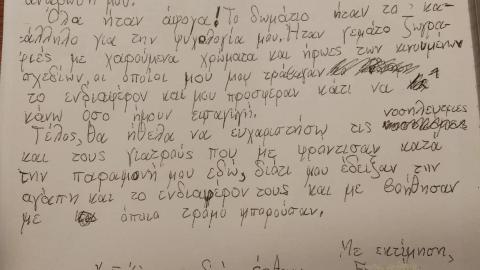 Όλα ήταν άψογα! Το δωμάτιο ήταν το κα-
τάλληλο για την ψυχολογία μου. Ήταν γεμάτο ζωγρα-
φιές με χαρούμενα χρώματα και ήρωες των κινουμένων
σχεδίων, οι οποίοι μου μου τράβαγαν
το ενδιαφέρον και μου προσφεραν κάτι να
κάνω όσο ήμουν εισαγωγή.
Τέλος, θα ήθελα να ευχαριστήσω τις νοσηλεύτριες
και τους γιατρούς που με φροντισαν κατά
την παραμονή μου εδώ, διότι μου έδειξαν την
αγάπη και το ενδιαφέρον τους και με βοήθησαν
με όποιο τρόπο μπορούσαν.
Με εκτίμηση,